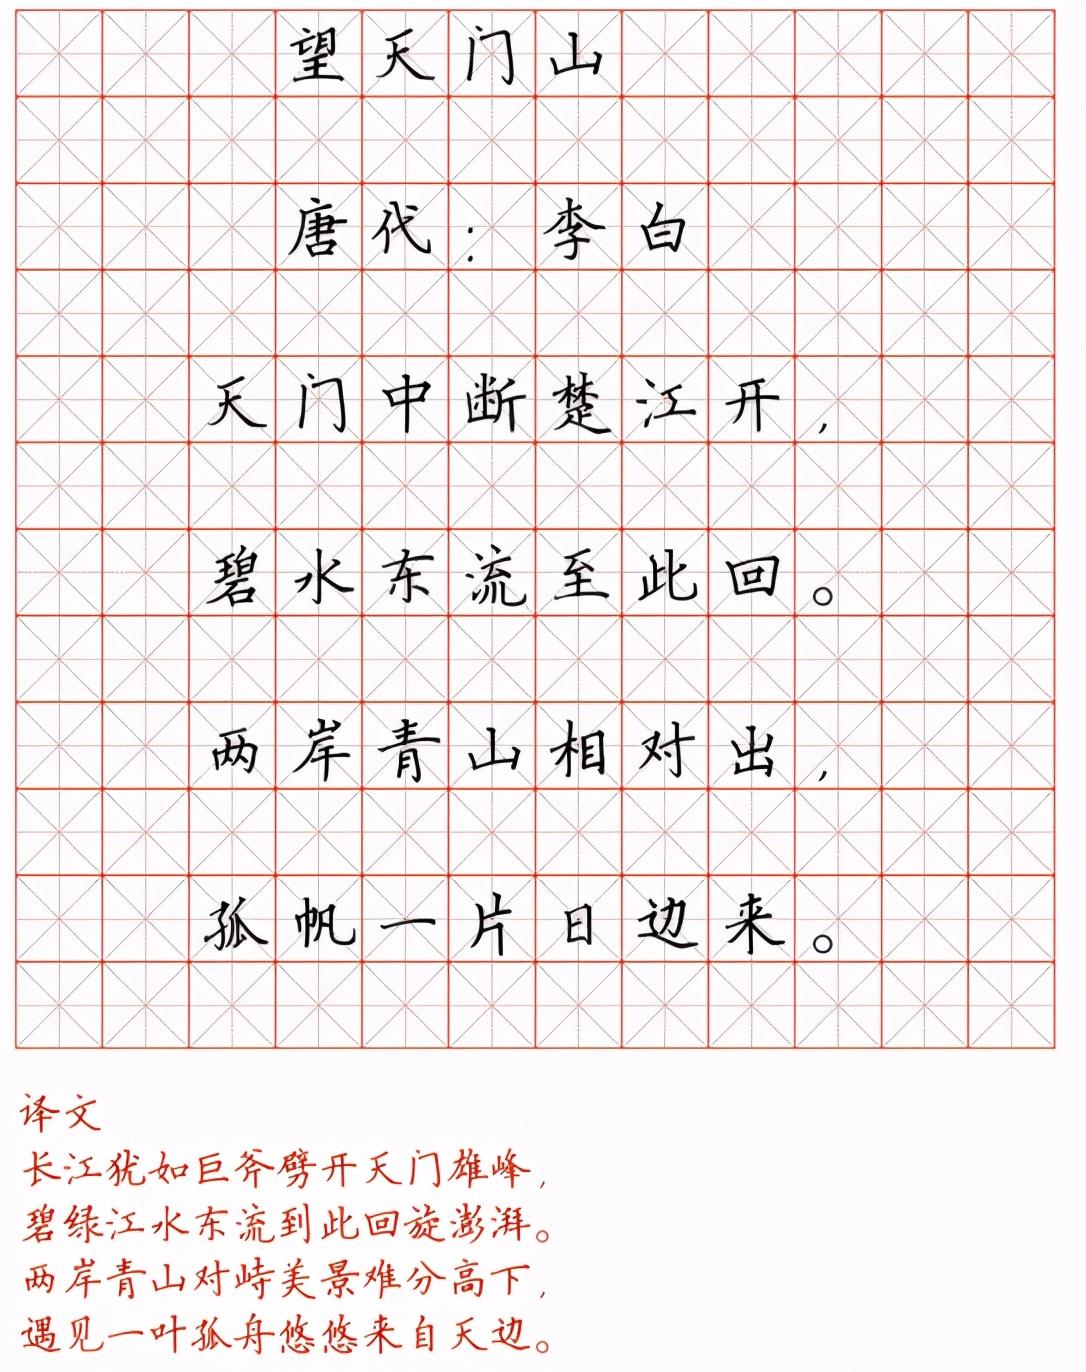 望天门山
唐代：李白
天门中断楚江开，
碧水东流至此回。
两岸青山相对出，
孤帆一片日边来。
译文
长江犹如巨斧劈开天门雄峰，
碧绿江水东流到此回旋澎湃。
两岸青山对峙美景难分高下，
遇见一叶孤舟悠悠来自天边。